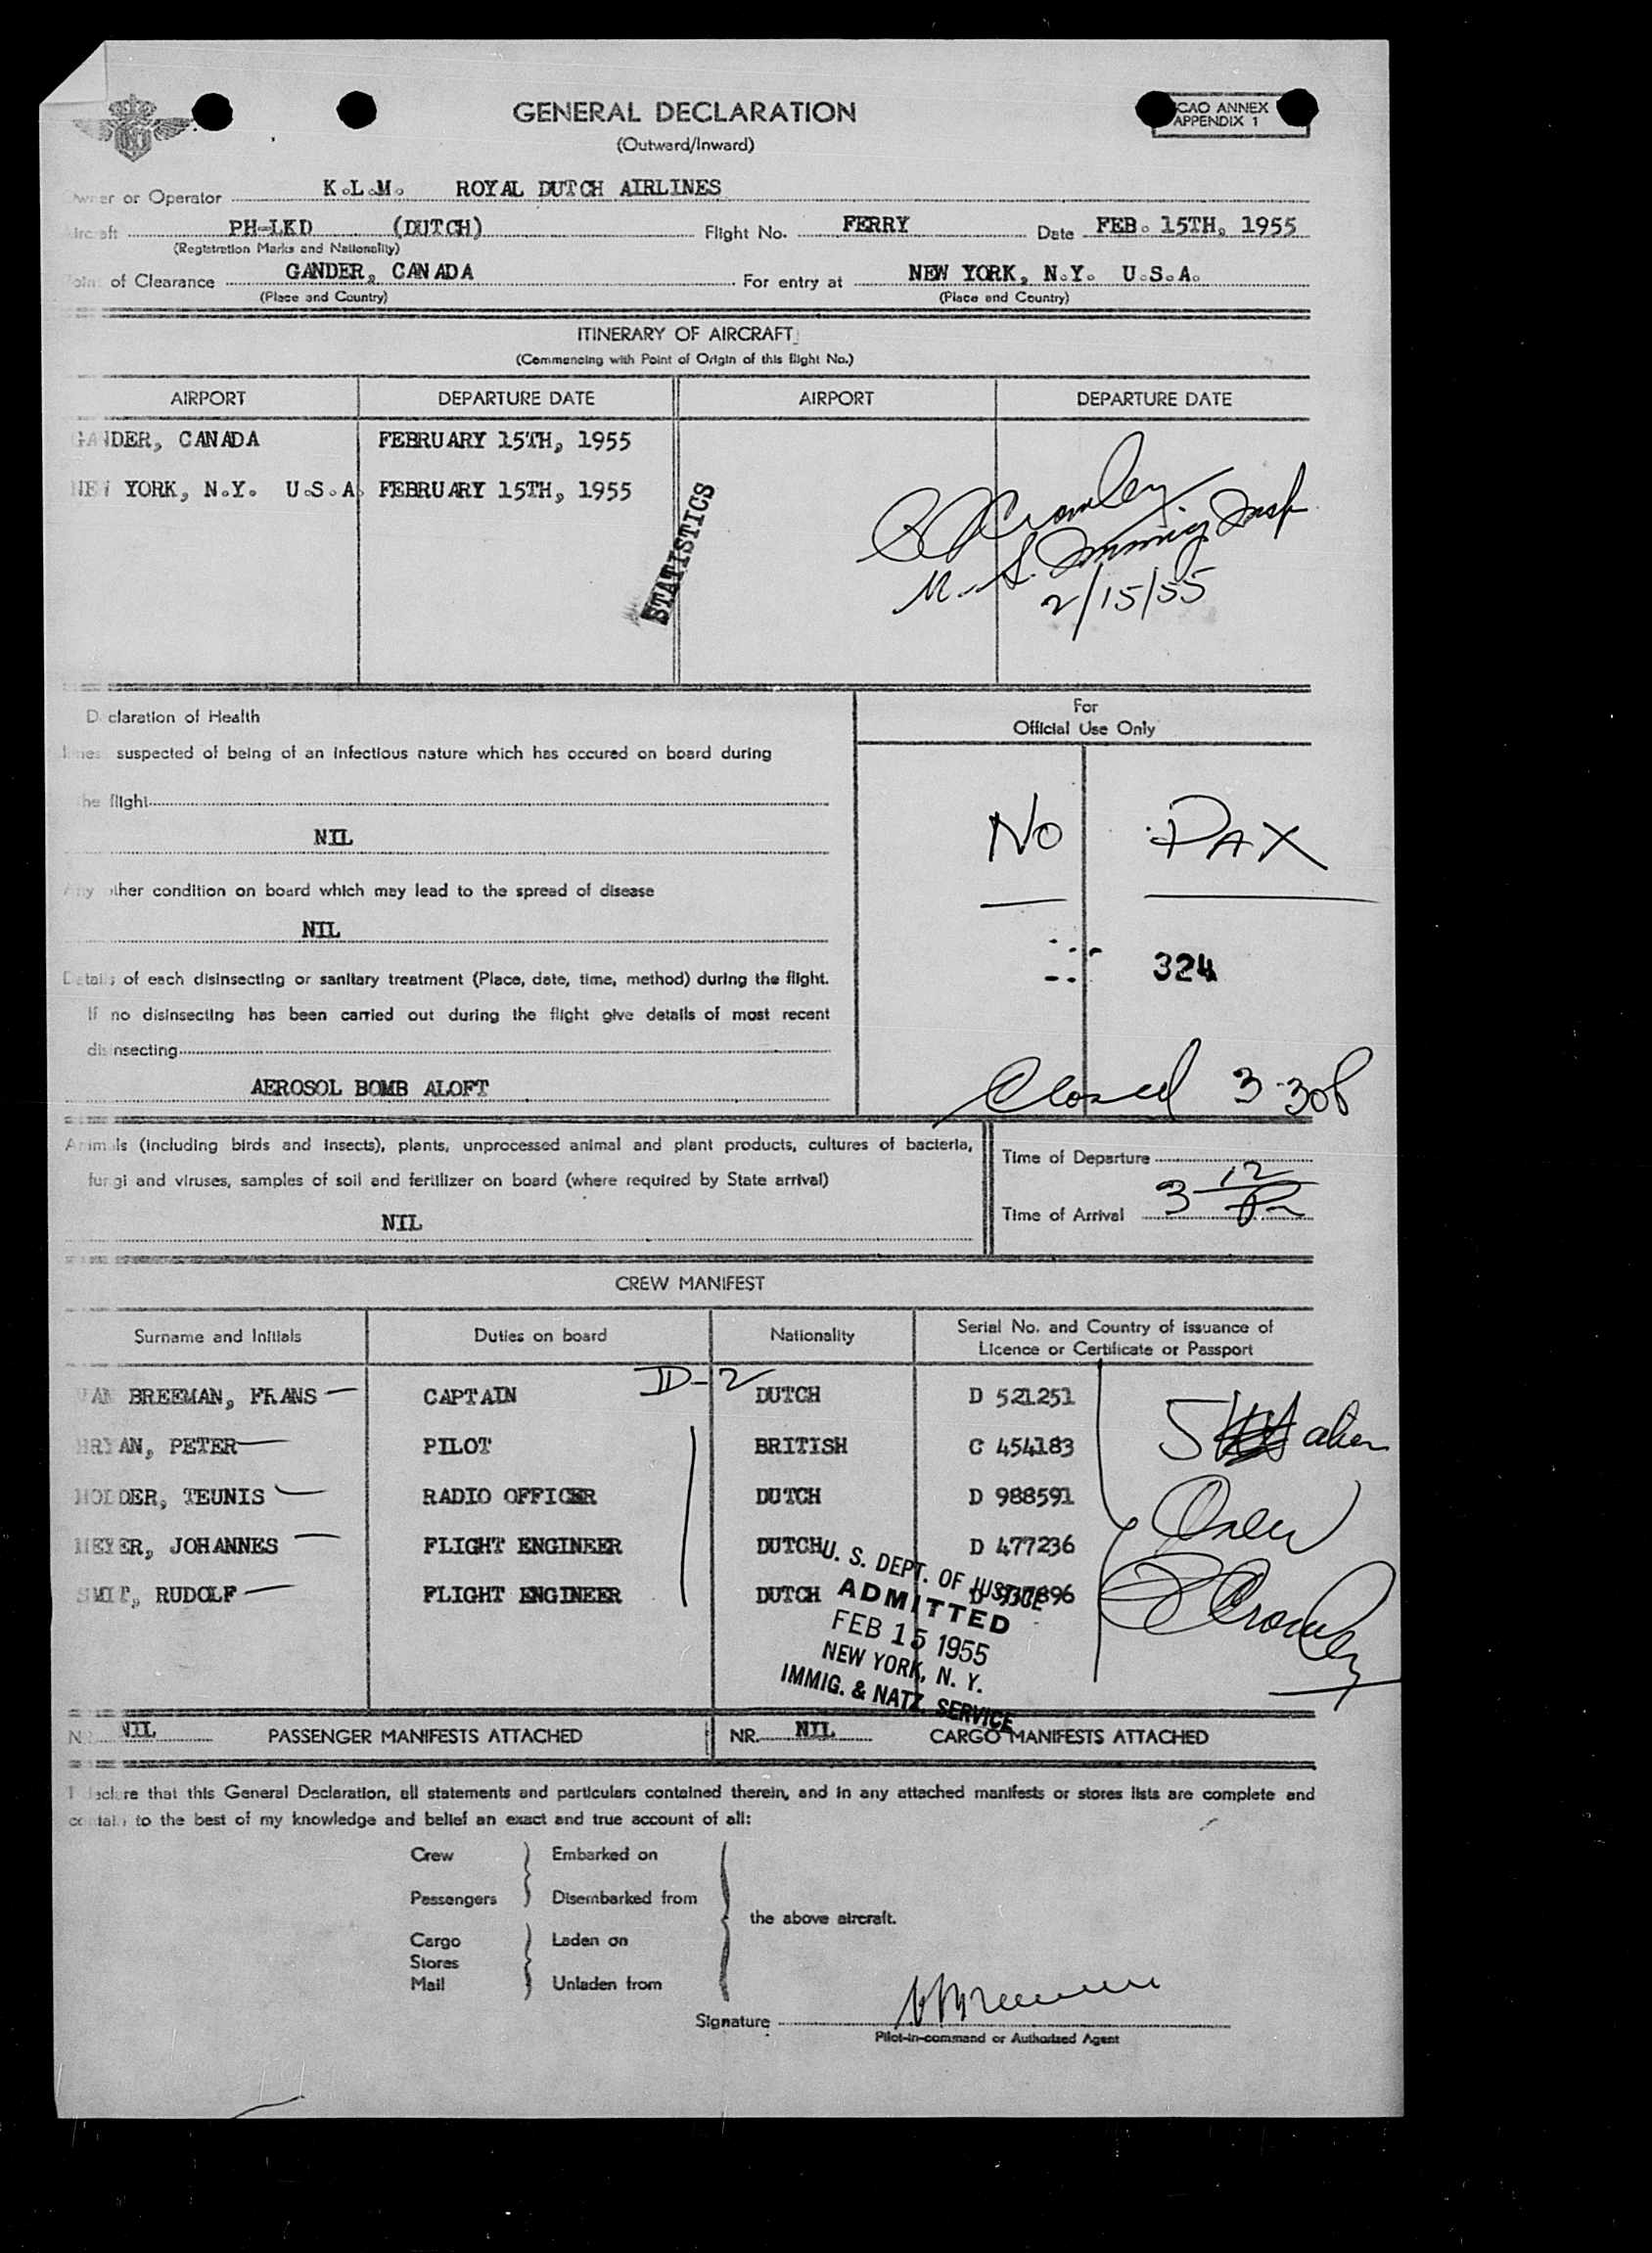 GENERAL DECLARATION
(Outward/Inward)
CAO ANNEX
APPENDIX 1
Owner or Operator K.L.M. ROYAL DUTCH AIRLINES
Aircraft PH-LKD (DUTCH) Flight No. FERRY Date FEB. 15TH, 1955
(Registration Marks and Nationality)
Point of Clearance GANDER, CANADA For entry at NEW YORK, N.Y. U.S.A.
(Place and Country) (Place and Country)
ITINERARY OF AIRCRAFT
(Commencing with Point of Origin of this flight No.)
AIRPORT DEPARTURE DATE AIRPORT DEPARTURE DATE
GANDER, CANADA FEBRUARY 15TH, 1955
NEW YORK, N.Y. U.S.A. FEBRUARY 15TH, 1955
STATISTICS
Cromley
U.S. Immig Insp
2/15/55
Declaration of Health
For
Official Use Only
Illness suspected of being of an infectious nature which has occured on board during
the flight
NIL
No PAX
Any other condition on board which may lead to the spread of disease
NIL
324
Details of each disinsecting or sanitary treatment (Place, date, time, method) during the flight.
If no disinsecting has been carried out during the flight give details of most recent
disinsecting
AEROSOL BOMB ALOFT
Closed 3-30P
Animals (including birds and insects), plants, unprocessed animal and plant products, cultures of bacteria,
fungi and viruses, samples of soil and fertilizer on board (where required by State arrival)
NIL
Time of Departure
Time of Arrival 3 12 P
CREW MANIFEST
Surname and Initials Duties on board Nationality Serial No. and Country of issuance of
Licence or Certificate or Passport
D-2
VAN BREEMAN, FRANS CAPTAIN DUTCH D 521251
BRYAN, PETER PILOT BRITISH C 454183
HODDER, TEUNIS RADIO OFFICER DUTCH D 988591
MEYER, JOHANNES FLIGHT ENGINEER DUTCH D 477236
SMIT, RUDOLF FLIGHT ENGINEER DUTCH
5 alien
Crew
Cromley
U. S. DEPT. OF JUSTICE
ADMITTED
FEB 15 1955
NEW YORK, N. Y.
IMMIG. & NATZ. SERVICE
NR. NIL PASSENGER MANIFESTS ATTACHED NR. NIL CARGO MANIFESTS ATTACHED
I declare that this General Declaration, all statements and particulars contained therein, and in any attached manifests or stores lists are complete and
contain to the best of my knowledge and belief an exact and true account of all:
Crew Embarked on
Passengers Disembarked from
the above aircraft.
Cargo Laden on
Stores
Mail Unladen from
Signature
Pilot-in-command or Authorized Agent